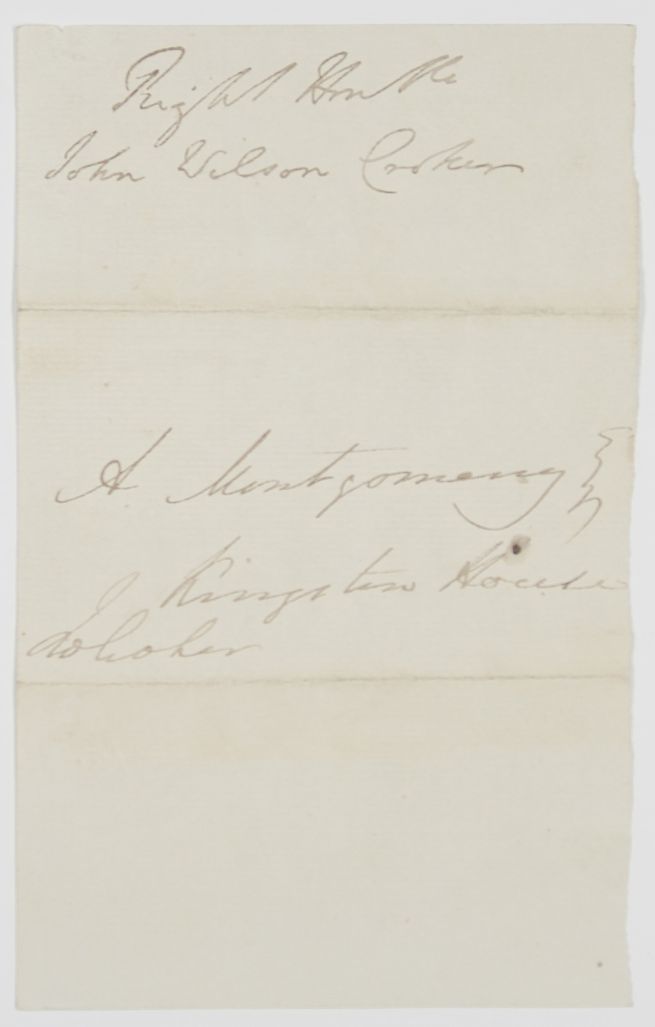 Right Honble
John Wilson Croker
A Montgomery Esqr
Kingston House